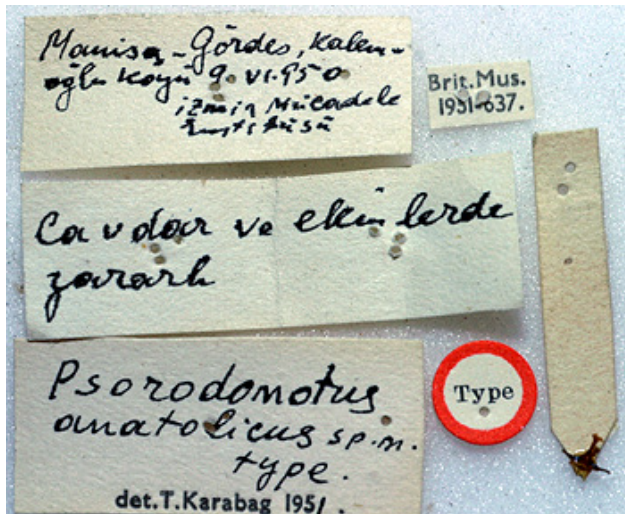 Manisa - Gördes, Kalem-
oğlu Köyü 9. VI. 950
izmir Mücadele
Enstitüsü
Brit.Mus.
1951-637.
Cavdar ve ekinlerde
zararlı
Psorodonotus
anatolicus sp.n.
type.
det.T.Karabag 1951.
Type